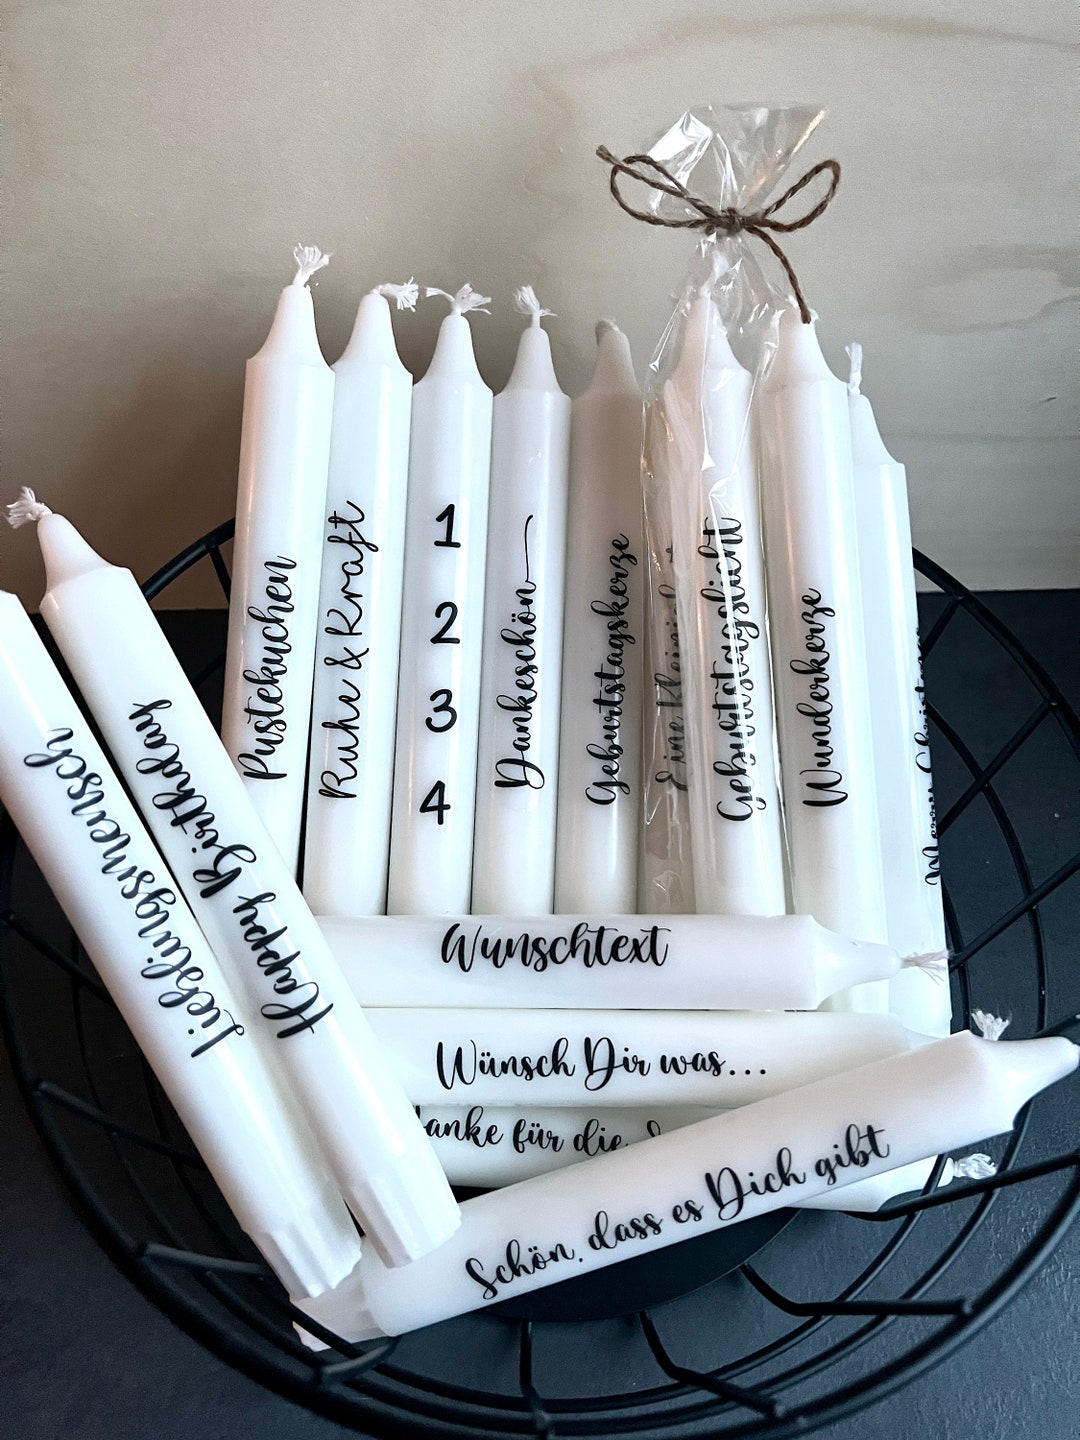 Pustekuchen
Ruhe & Kraft
1
2
3
4
Dankeschön
Geburtstagskerze
Eine kleine
Geburtstagslicht
Wunderkerze
Merry Christmas
Lieblingsmensch
Happy Birthday
Wunschtext
Wünsch Dir was...
Danke für die
Schön, dass es Dich gibt